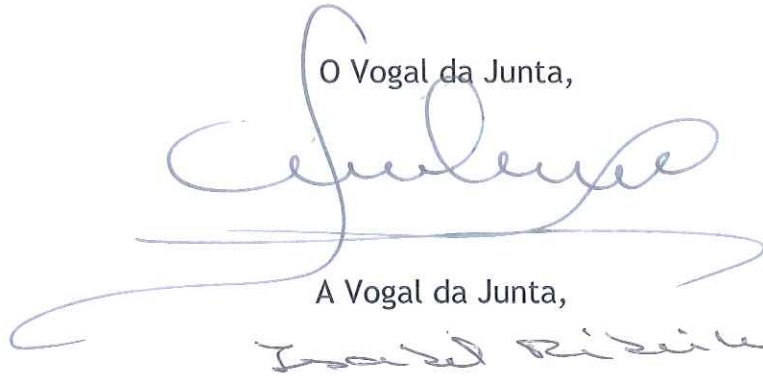 O Vogal da Junta,
A Vogal da Junta,
Isabel Ribeiro